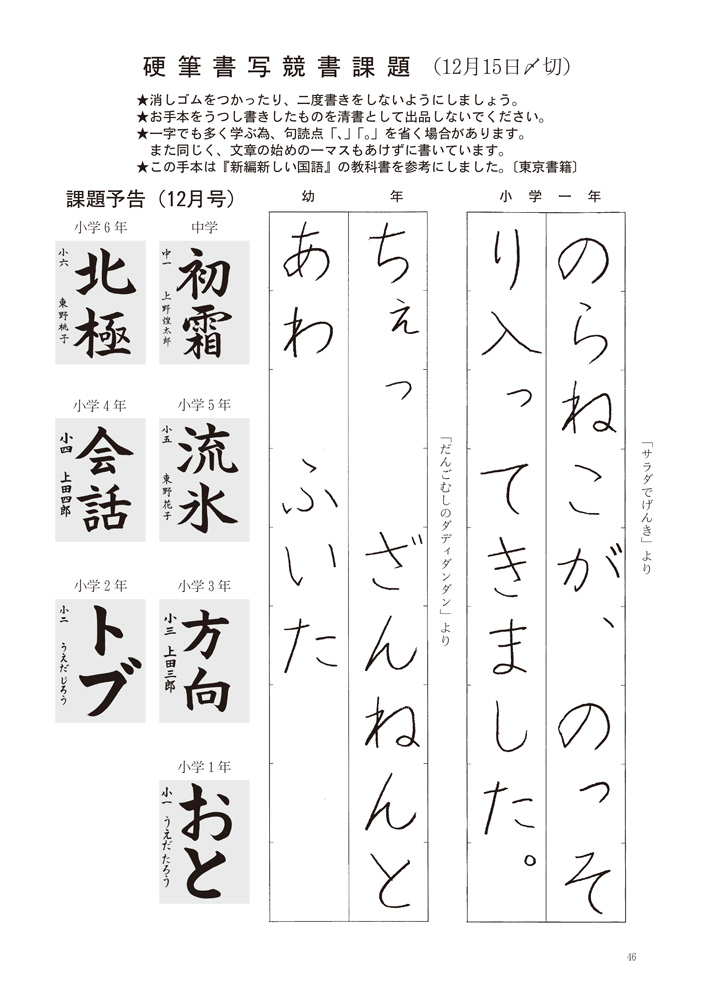 硬筆書写競書課題（12月15日〆切）
★消しゴムをつかったり、二度書きをしないようにしましょう。
★お手本をうつし書きしたものを清書として出品しないでください。
★一字でも多く学ぶ為、句読点「、」「。」を省く場合があります。
また同じく、文章の始めの一マスもあけずに書いています。
★この手本は『新編新しい国語』の教科書を参考にしました。〔東京書籍〕
小学一年
「サラダでげんき」より
のらねこが、のっそ
り入ってきました。
幼年
「だんごむしのダディダンダン」より
ちぇっ ざんねんと
あわ ふいた
課題予告（12月号）
中学
初霜
中一 上野煌太郎
小学6年
北極
小六 東野桃子
小学5年
流氷
小五 東野花子
小学4年
会話
小四 上田四郎
小学3年
方向
小三 上田三郎
小学2年
トブ
小二 うえだじろう
小学1年
おと
小一 うえだたろう
46